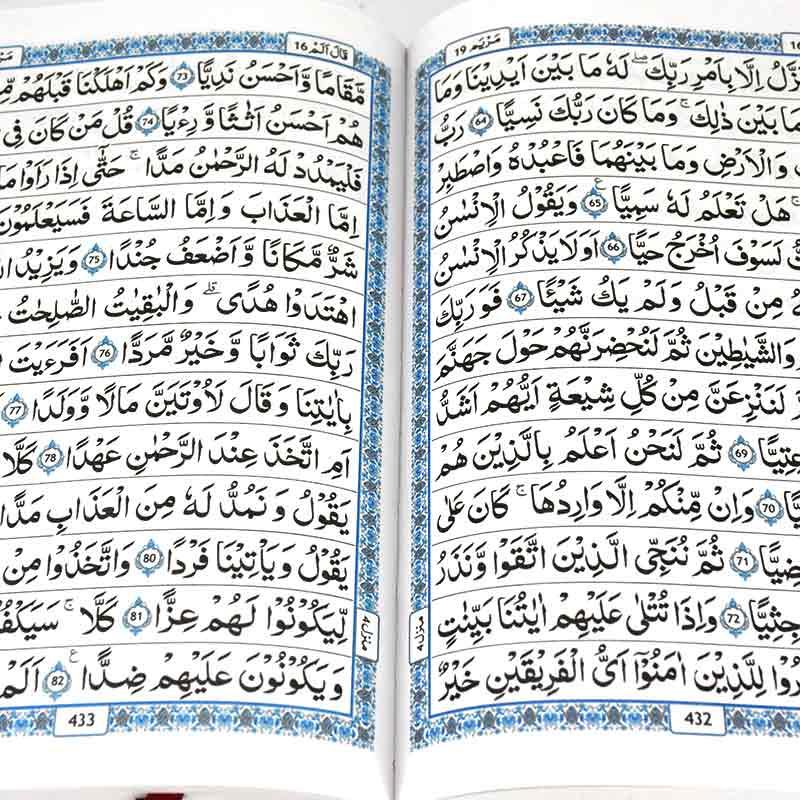 مَرْيَم 19
اِلَّا بِاَمْرِ رَبِّكَ ۚ لَهٗ مَا بَيْنَ اَيْدِيْنَا وَمَا
بَيْنَ ذٰلِكَ ۚ وَمَا كَانَ رَبُّكَ نَسِيًّا 64 رَبُّ
وَالْاَرْضِ وَمَا بَيْنَهُمَا فَاعْبُدْهُ وَاصْطَبِرْ
هَلْ تَعْلَمُ لَهٗ سَمِيًّا 65 ع وَيَقُوْلُ الْاِنْسٰنُ
لَسَوْفَ اُخْرَجُ حَيًّا 66 اَوَلَا يَذْكُرُ الْاِنْسٰنُ
مِنْ قَبْلُ وَلَمْ يَكُ شَيْـًٔا 67 فَوَرَبِّكَ
وَالشَّيٰطِيْنَ ثُمَّ لَنُحْضِرَنَّهُمْ حَوْلَ جَهَنَّمَ
لَنَنْزِعَنَّ مِنْ كُلِّ شِيْعَةٍ اَيُّهُمْ اَشَدُّ
عِتِيًّا 69 ثُمَّ لَنَحْنُ اَعْلَمُ بِالَّذِيْنَ هُمْ
70 وَاِنْ مِّنْكُمْ اِلَّا وَارِدُهَا ۚ كَانَ عَلٰى
71 ثُمَّ نُنَجِّى الَّذِيْنَ اتَّقَوْا وَّنَذَرُ
جِثِيًّا 72 وَاِذَا تُتْلٰى عَلَيْهِمْ اٰيٰتُنَا بَيِّنٰتٍ
لِلَّذِيْنَ اٰمَنُوْٓا اَىُّ الْفَرِيْقَيْنِ خَيْرٌ
432
قَالَ اَلَمْ 16
مَّقَامًا وَّاَحْسَنُ نَدِيًّا 73 وَكَمْ اَهْلَكْنَا قَبْلَهُمْ
هُمْ اَحْسَنُ اَثَاثًا وَّرِءْيًا 74 قُلْ مَنْ كَانَ فِى
فَلْيَمْدُدْ لَهُ الرَّحْمٰنُ مَدًّا ۚ حَتّٰٓى اِذَا رَاَوْا
اِمَّا الْعَذَابَ وَاِمَّا السَّاعَةَ فَسَيَعْلَمُوْنَ
شَرٌّ مَّكَانًا وَّاَضْعَفُ جُنْدًا 75 وَيَزِيْدُ
اهْتَدَوْا هُدًى ؕ وَالْبٰقِيٰتُ الصّٰلِحٰتُ
رَبِّكَ ثَوَابًا وَّخَيْرٌ مَّرَدًّا 76 اَفَرَءَيْتَ
بِاٰيٰتِنَا وَقَالَ لَاُوْتَيَنَّ مَالًا وَّوَلَدًا 77
اَمِ اتَّخَذَ عِنْدَ الرَّحْمٰنِ عَهْدًا 78 كَلَّا
يَقُوْلُ وَنَمُدُّ لَهٗ مِنَ الْعَذَابِ مَدًّا
يَقُوْلُ وَيَاْتِيْنَا فَرْدًا 80 وَاتَّخَذُوْا مِنْ
لِّيَكُوْنُوْا لَهُمْ عِزًّا 81 كَلَّا ۚ
وَيَكُوْنُوْنَ عَلَيْهِمْ ضِدًّا 82 ع اَلَمْ
433